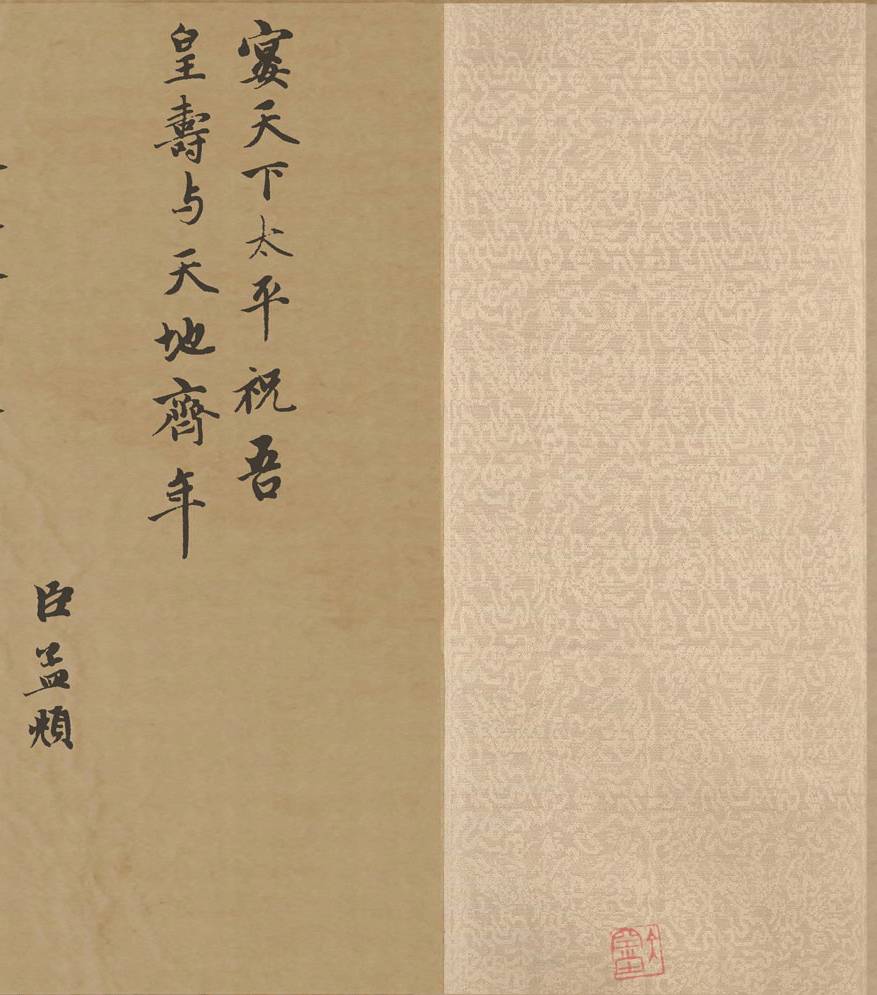 宴天下太平祝吾
皇壽与天地齊年
臣孟頫